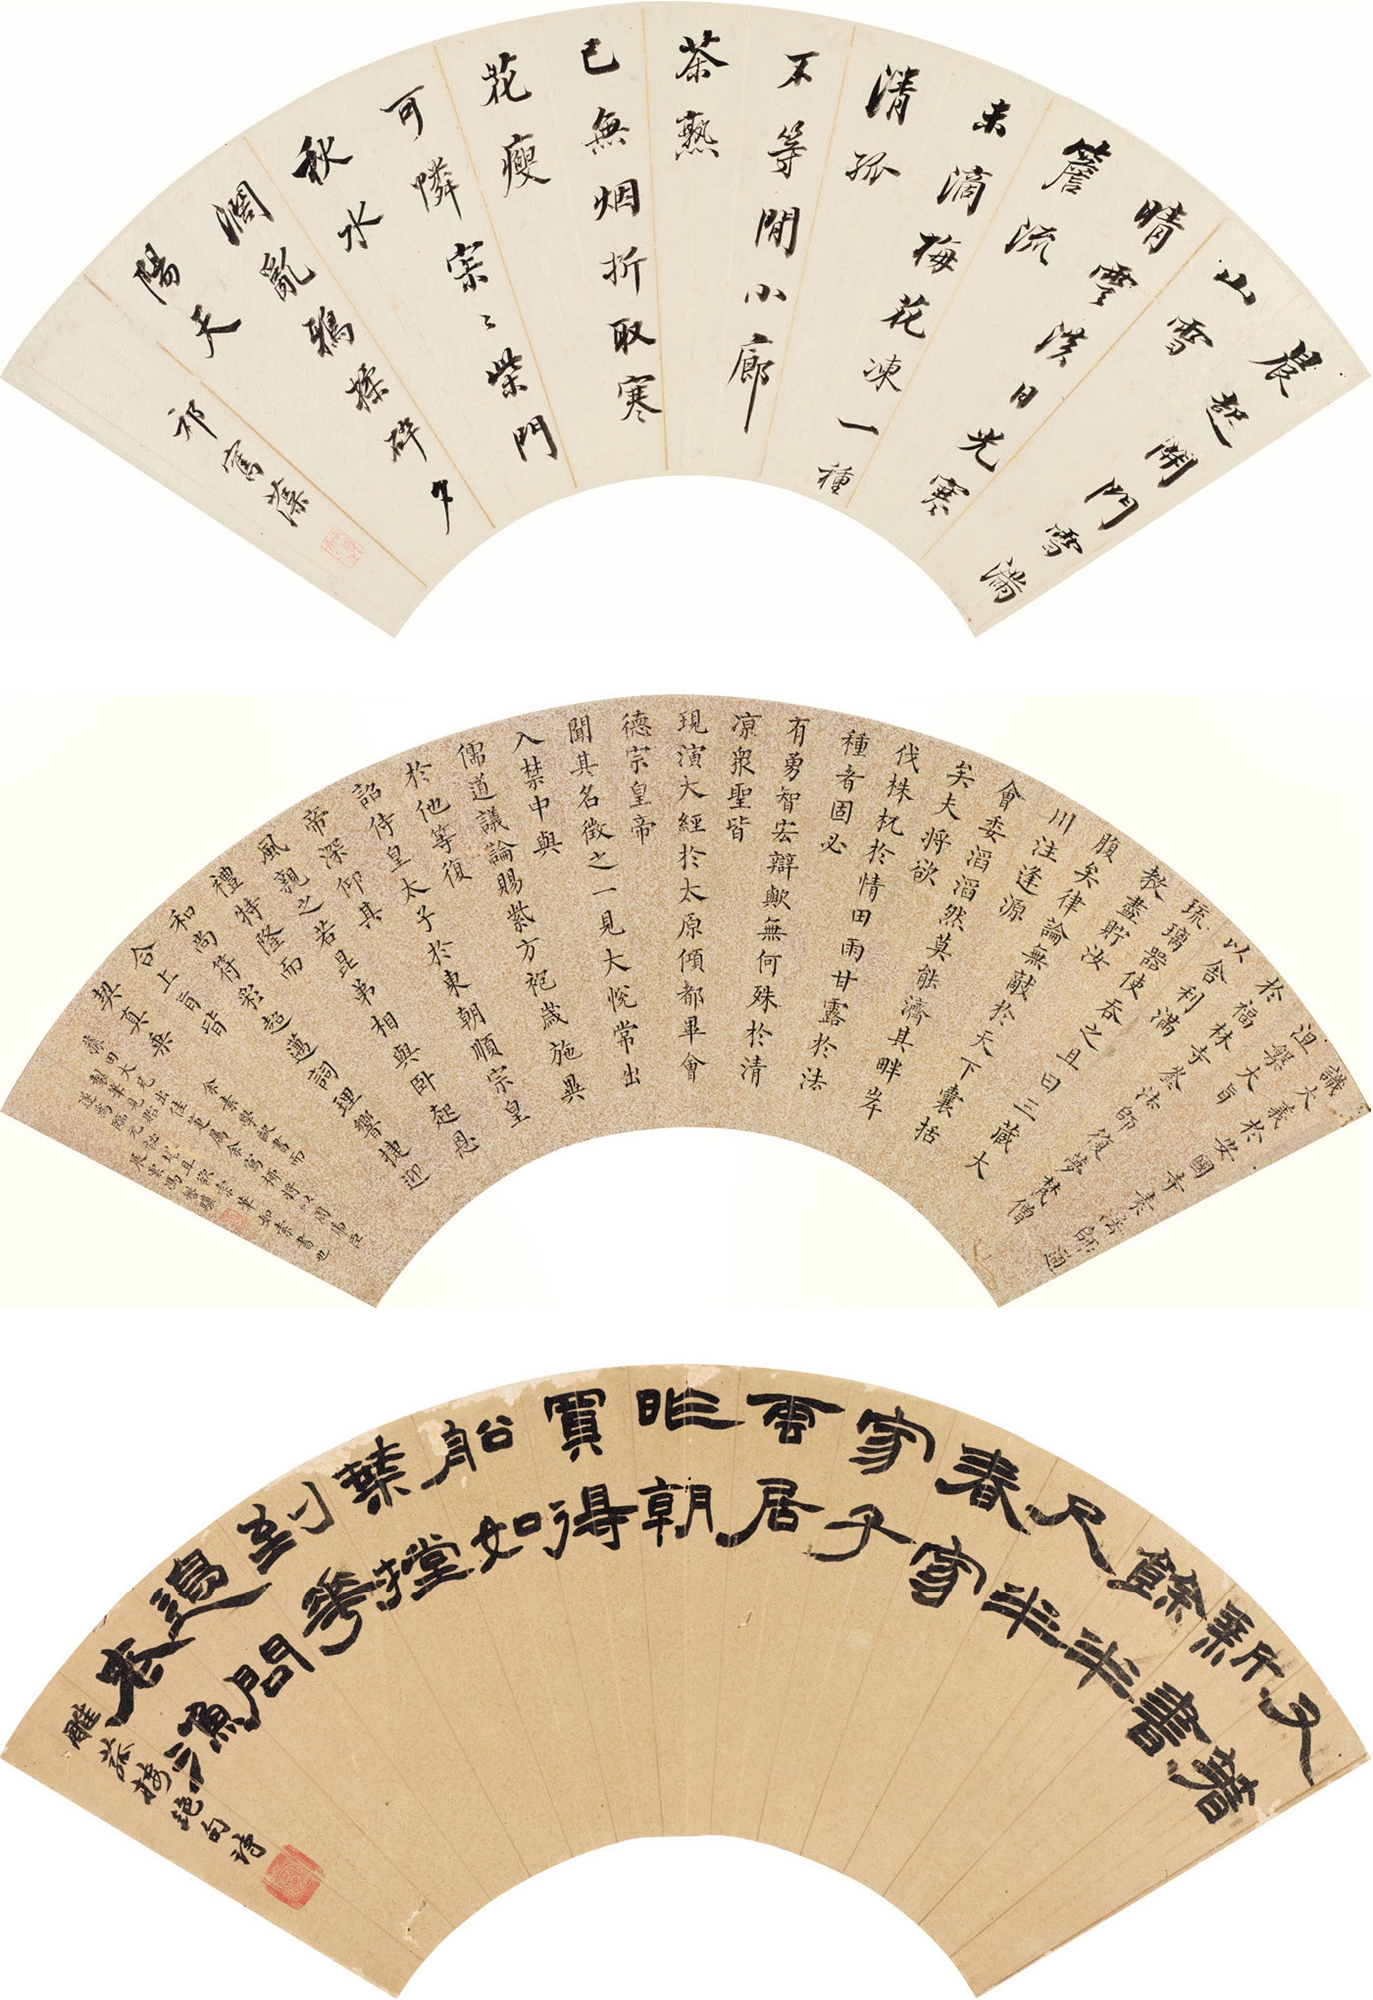 晨起開門雪滿
山雪
晴雲淡日光寒
簷流
未滴梅花凍一種
清孤
不等閒小廊
茶熟
已無烟折取寒
花瘦
可憐寂〻柴門
秋水
濶亂鴉揉碎夕
陽天
祁寯藻
識大義於安國寺素法師通
涅槃大旨
於福林寺崟法師復夢梵僧
以舍利滿
琉璃器使吞之且曰三藏大
教盡貯汝
腹矣律論無敵於天下囊括
川注逢源
會委滔滔然莫能濟其畔岸
矣夫將欲
伐株杌於情田雨甘露於法
種者固必
有勇智宏辯歟無何殊於清
凉衆聖皆
現演大經於太原傾都畢會
德宗皇帝
聞其名徵之一見大悅常出
入禁中與
儒道議論賜紫方袍歲施異
於他等復
詔侍皇太子於東朝順宗皇
帝深仰其
風親之若昆弟相與卧起恩
禮特隆而
和尚符彩超邁詞理響捷迎
合上旨皆
契真乘
又著
新書
餘半
尺半
春家
家子
雲居
昨朝
買得
船如
葉撑
到華
邊問
老漁
雕菰樓絕句詩